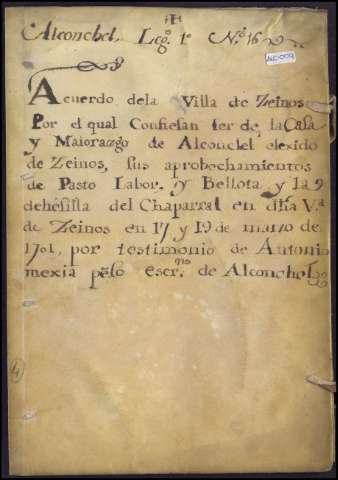 Alconchel, Leg.º 1º N.º 16
ALC-009
Acuerdo dela Villa de Zeinos
Por el qual Confiesan ser de, la Casa
y Maiorazgo de Alconchel elexido
de Zeinos, sus aprobechamientos
de Pasto Labor, y Bellota, y la
dehesilla del Chaparral en dha V.ª
de Zeinos en 17 y 19 de marzo de
1701, por testimonio de Antonio
mexia escr.no de Alconchel
4